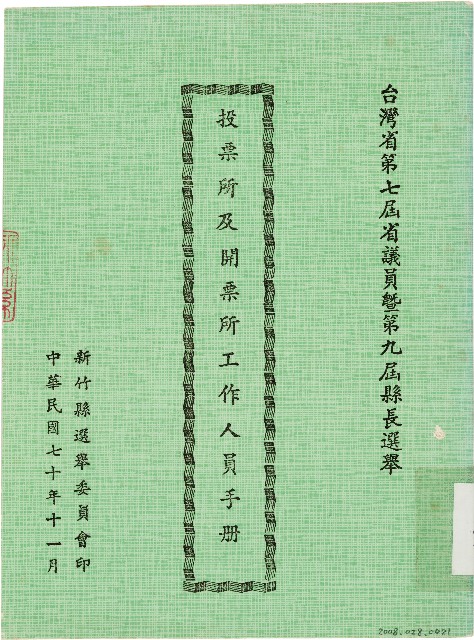 台灣省第七屆省議員曁第九屆縣長選舉
投票所及開票所工作人員手册
新竹縣選舉委員會印
中華民國七十年十一月
2008.028.0421